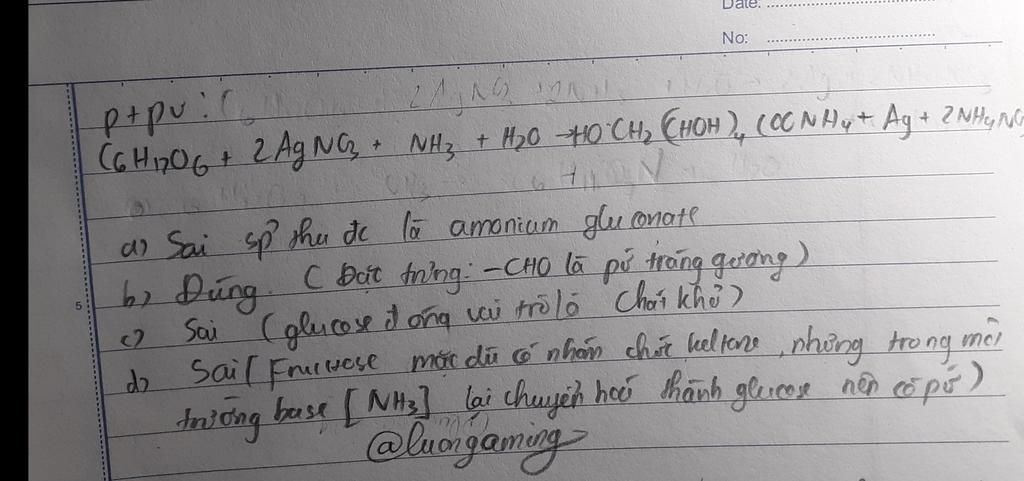 Date:
No:
p+pư:
C6H12O6 + 2AgNO3 + NH3 + H2O → HO CH2 (CHOH)4 COONH4 + Ag + 2NH4NO
a) Sai sp thu đc là amonium gluconate
5
b) Đúng. (Đặc trưng: -CHO là pứ tráng gương)
c) Sai (glucose đóng vai trò là chất khử)
d) Sai (Fructose mặc dù có nhóm chức keltone, nhưng trong môi
trường base [NH3] lại chuyển hoá thành glucose nên có pứ)
@luongaming